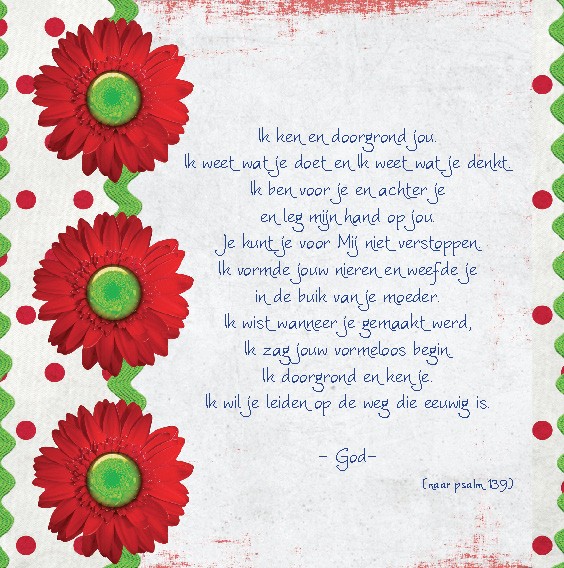 Ik ken en doorgrond jou.
Ik weet wat je doet en Ik weet wat je denkt.
Ik ben voor je en achter je
en leg mijn hand op jou.
Je kunt je voor Mij niet verstoppen.
Ik vormde jouw nieren en weefde je
in de buik van je moeder.
Ik wist wanneer je gemaakt werd,
Ik zag jouw vormeloos begin.
Ik doorgrond en ken je.
Ik wil je leiden op de weg die eeuwig is.
- God-
(naar psalm 139)